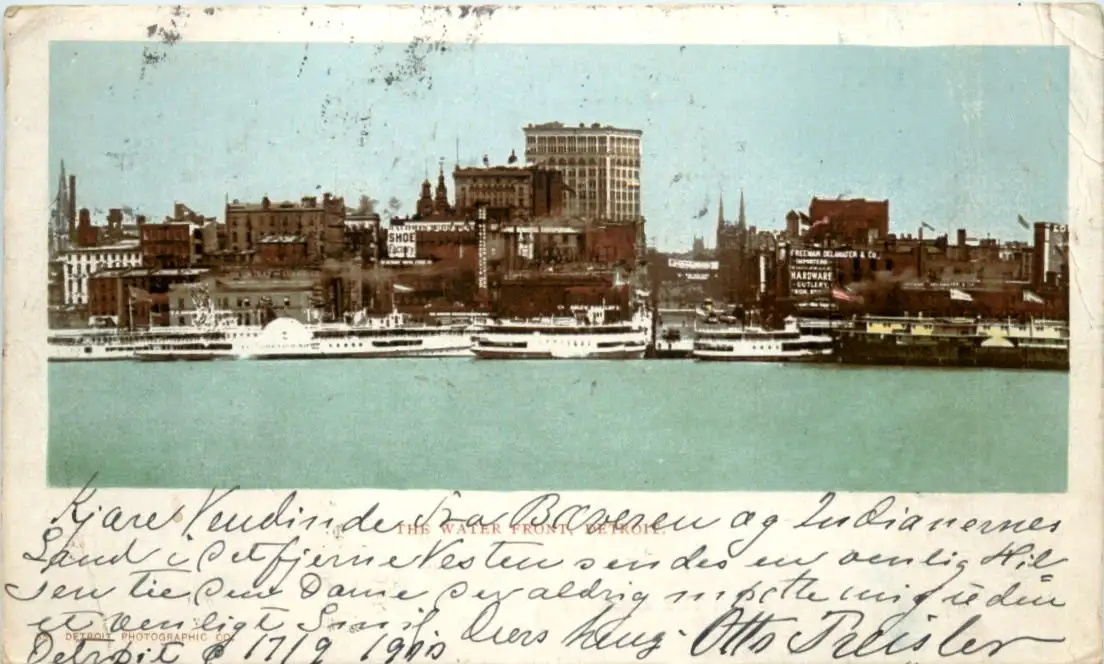 SHOE
FREEMAN DELAMATER & CO.
HARDWARE
CUTLERY
THE WATER FRONT, DETROIT.
Kjære Veninde Fra Bæveren og Indianernes
Land i det fjerne Vesten sendes en venlig Hil=
sen til den Dame der aldrig mødte mig uden
et venligt Smil Deres heng. Otto
DETROIT PHOTOGRAPHIC CO.
Detroit d 17/9